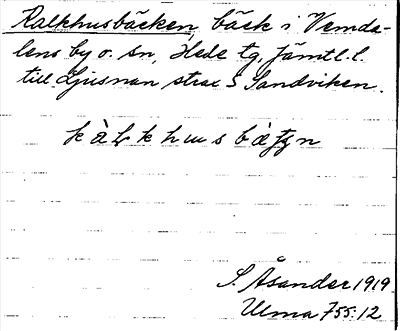 Kalkhusbäcken, bäck i Vemda-
lens by o. sn, Hede tg, Jämtl. l.
till Ljusnan strax S Sandviken.
S. Åsander 1919.
Ulma 755:12